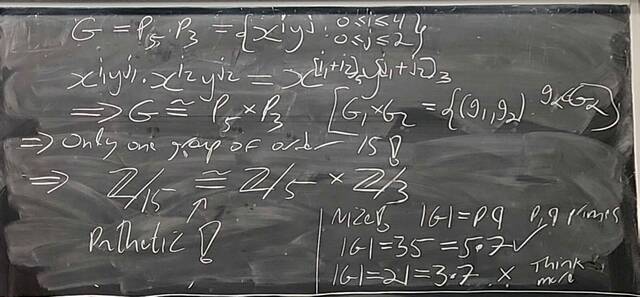 G = P₅ . P₃ = {xⁱyʲ : 0≤i≤4 0≤j≤2}
xⁱ¹yʲ¹ . xⁱ²yʲ² = x^[i₁+i₂]₅ y^[j₁+j₂]₃
⟹ G ≅ P₅ × P₃ [G₁×G₂ = {(g₁,g₂) g₂∈G₂}
⟹ Only one group of order 15!
⟹ Z/15 ≅ Z/5 × Z/3
Pathetic!
|G|=pq p,q primes
|G|=35=5.7 ✓
|G|=21=3.7 × Think more